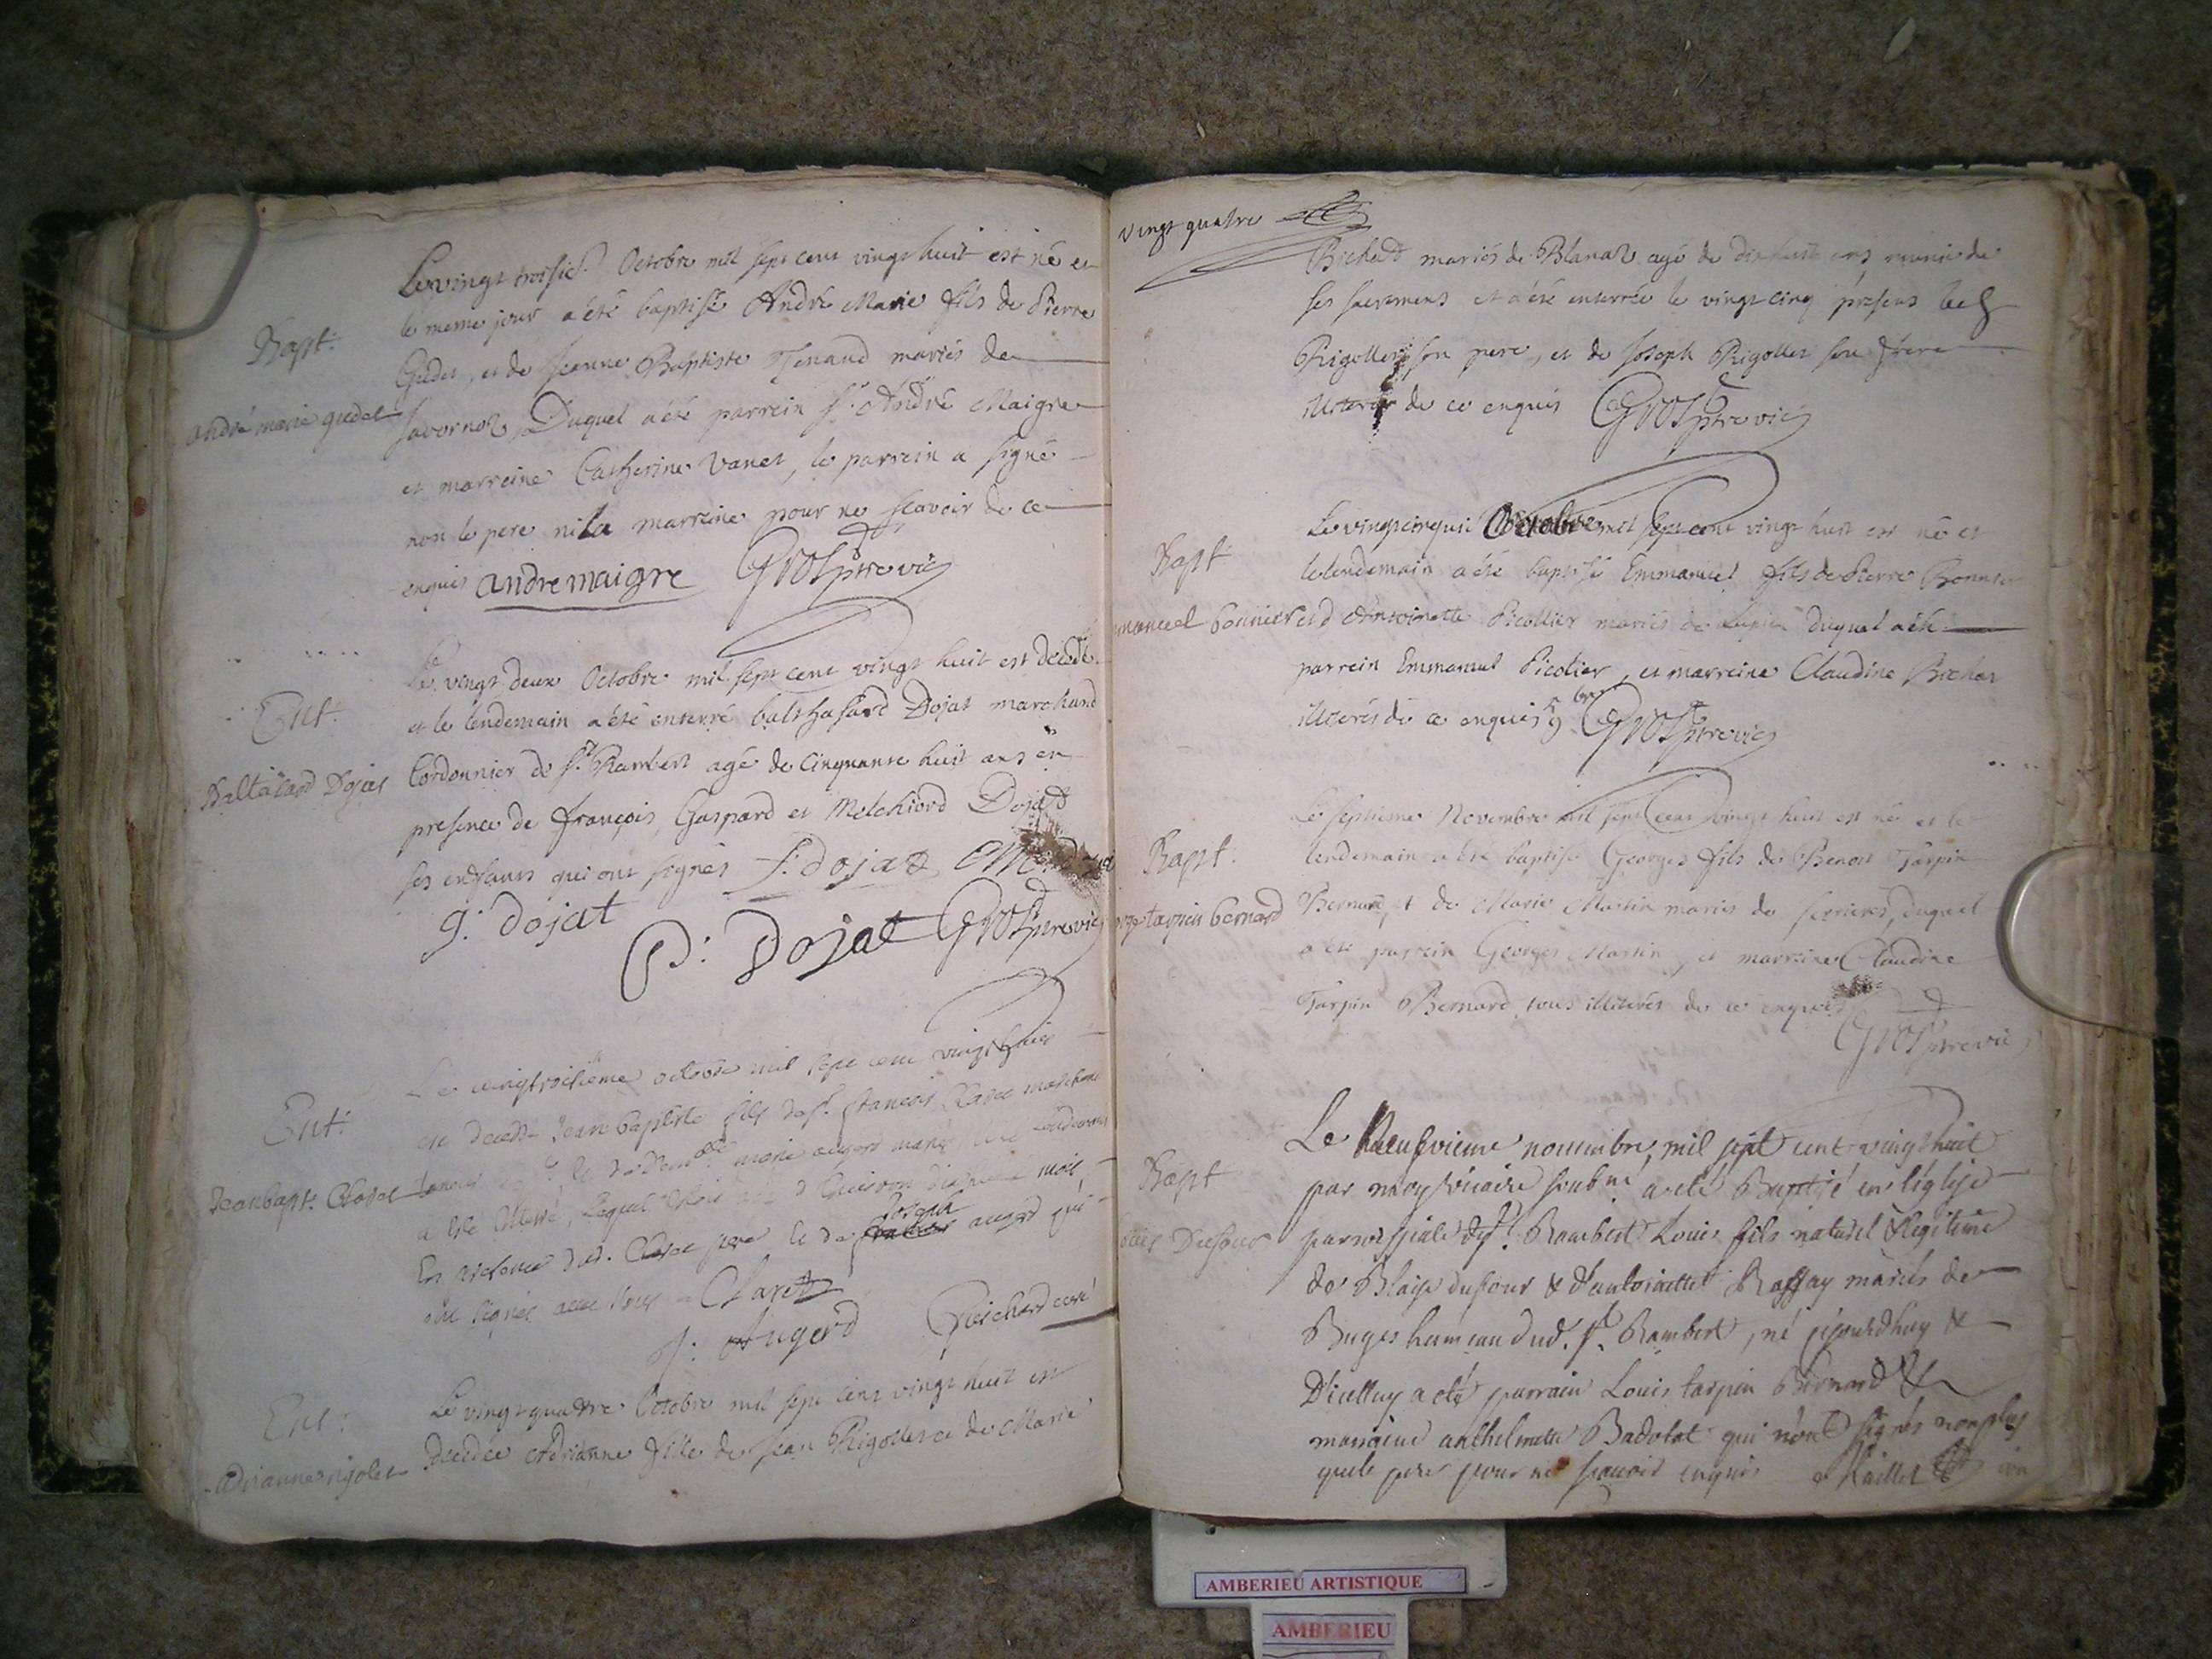 Le vingt troisie. Octobre mil sept cent vingt huit est né et
Bapt: le meme jour a été baptisé André Marie fils de Pierre
Gudet, et de Jeanne Baptiste Tenand mariés de
andré marie gudet Javornoz, Duquel a été parrein Sr. André Maigre
et marreine Catherine Vanet, le parrein a signé
non le pere ni la marreine pour ne scavoir de ce
enquis andre maigre Grosptrevic
Le vingt deux Octobre mil sept cent vingt huit est décédé
Ent: et le lendemain a été enterré balthasard Dojat marchand
Baltasard Dojat Cordonnier de St. Rambert agé de Cinquante huit ans en
presence de françois, Gaspard et Melchiord Dojat
ses enfans qui ont signés f: dojat
g: dojat
P: Dojat Grosptrevic
Le vingtroisième octobre mil sept cent vingt huit
Ent: est decedé Jean baptiste fils de Sr. francois Claret marchand
Jean bapt. Claret et de demlle marie augerd mariés, le lendemain
a été enterré, lequel d'environ mois
En presence dud. Claret pere et de Joseph augerd qui
ont signés avec nous Claret
J: Augerd Reichard curé
Ent: Le vingt quatre Octobre mil sept cent vingt huit est
Adrianne rigolet décédée Adrianne fille de Jean Rigollet et de Marie
vingt quatre
Bichat mariés de Blanaz agé de dix huit ans munie de
ses sacremens et a été enterrée le vingt cinq présens led
Rigollet son pere, et de Joseph Rigollet son frere
de ce enquis Grosptrevic
Le vingtcinquie Octobre mil sept cent vingt huit est né et
Bapt le lendemain a été baptisé Emmanuel fils de Pierre Bonnier
manuel bonnier et d Antoinette Picollier mariés de duquel a été
parrein Emmanuel Picolier, et marreine Claudine Bichat
illiterés de ce enquis Grosptrevic
Le septieme Novembre mil sept cent vingt huit est né et le
Bapt: lendemain a été baptisé Georges fils de Benoit Tarpin
orge tarpin bernard Bernard, et de Marie Martin mariés de serrieres, duquel
a été parrein Georges Martin, et marreine Claudine
Tarpin Bernard tous illiterés de ce enquis
Grosptrevic
Le Neufvieme novembre mil sept cent vingt huit
Bapt par moy vicaire soubne a eté Baptisé en l'église
ouis Dufour parroissiale de St. Rambert Louis fils naturel & legitime
de Blaise dufour & d'antoinette Roffay mariés de
Buges hameau dud. St. Rambert, né cejourdhuy &
D'icelluy a eté parrain Louis tarpin Bernard &
marraine anthelmette Badolat qui n'ont signés non plus
que le pere pour ne scavoir enquis
AMBERIEU ARTISTIQUE
AMBERIEU